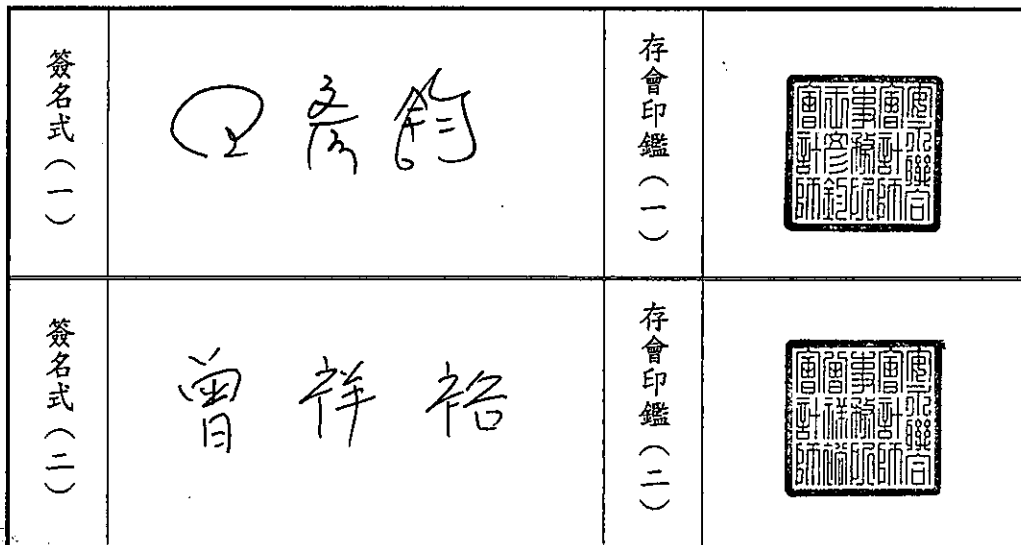 簽名式（一）
王彥鈞
存會印鑑（一）
安永聯合
會計師
事務所
王彥鈞
會計師
簽名式（二）
曾祥裕
存會印鑑（二）
安永聯合
會計師
事務所
曾祥裕
會計師